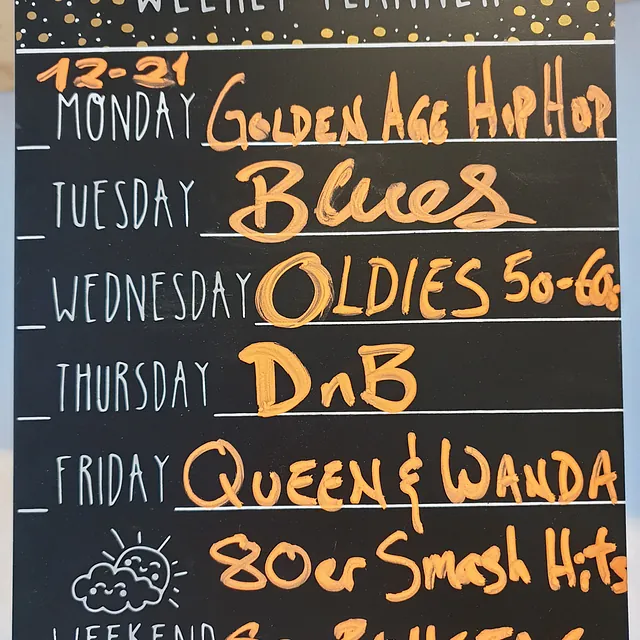 WEEKLY PLANNER
12-21
MONDAY GOLDEN AGE HIPHOP
TUESDAY Blues
WEDNESDAY OLDIES 50-60s
THURSDAY DnB
FRIDAY QUEEN & WANDA
80er Smash Hits
WEEKEND